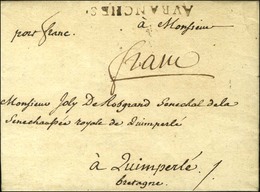 AVRANCHES.
port franc.
à Monsieur
franc
Monsieur Joly De Rosgrand Senechal de la
Senechaussée royale de Quimperlé
à Quimperlé
bretagne.